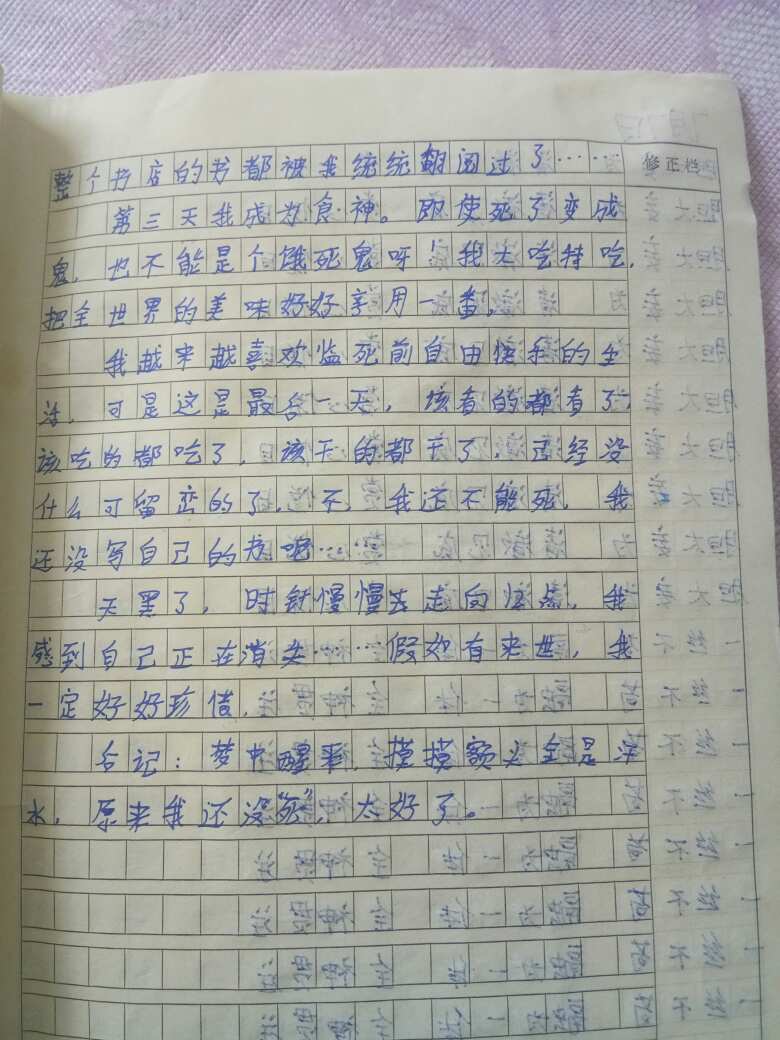 整个书店的书都被我统统翻阅过了……
修正栏
第三天我成为食神。即使死了变成
鬼，也不能是个饿死鬼呀！我大吃特吃，
把全世界的美味好好享用一番。
我越来越喜欢临死前自由快乐的生
活，可是这是最后一天，该看的都看了，
该吃的都吃了，该干的都干了，已经没
什么可留恋的了，不，我还不能死，我
还没写自己的书呢……
天黑了，时针慢慢走向终点，我
感到自己正在消失……假如有来世，我
一定好好珍惜。
后记：梦中醒来，摸摸额头全是汗
水，原来我还没“死”，太好了。